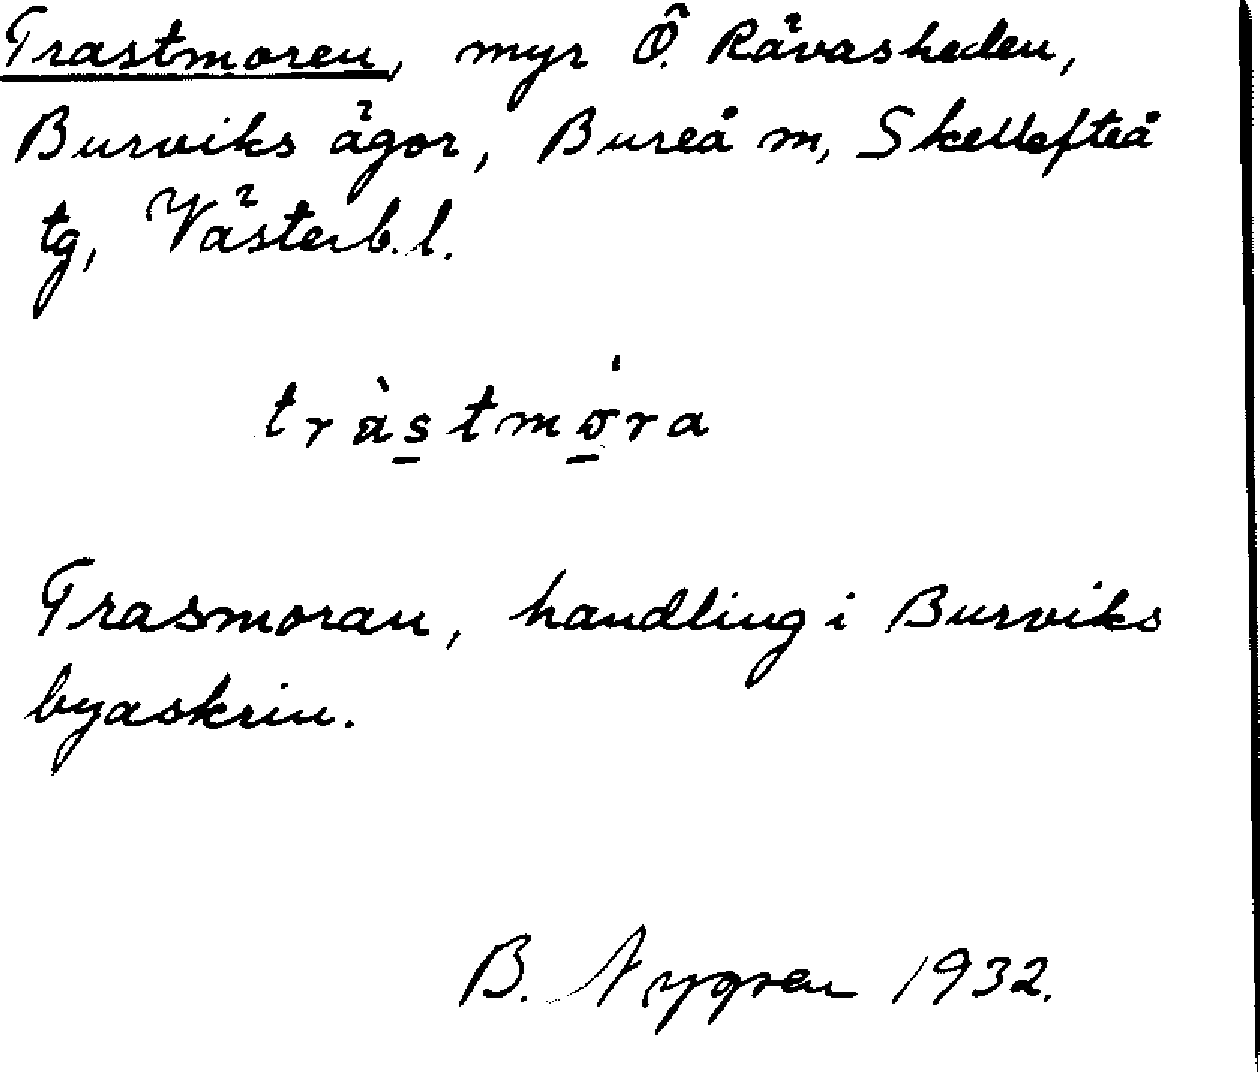 Trastmoren, myr Ö. Rävasheden,
Burviks ägor, Bureå m, Skellefteå
tg, Västerb.l.
tràs̲tmo̲̍ra
Trasmoran, handling i Burviks
byaskrin.
B. Nygren 1932.